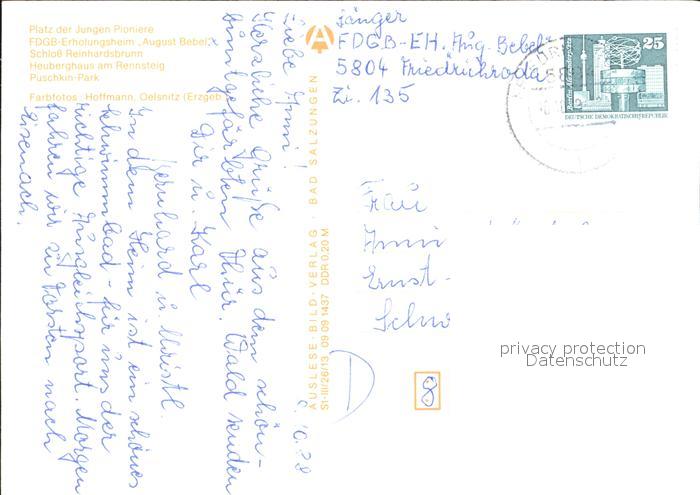 Platz der Jungen Pioniere
FDGB-Erholungsheim „August Bebel"
Schloß Reinhardsbrunn
Heuberghaus am Rennsteig
Puschkin-Park
Farbfotos: Hoffmann, Oelsnitz (Erzgeb
Liebe Anni!
Herzliche Grüße aus dem schön-
buntgefärbten Thür. Wald senden
Dir u. Karl
Bernhard u. Christl.
In dem Heim ist ein schönes
Schwimmbad - für uns der
richtige Ausgleichsport. Morgen
fahren wir zu Torsten nach
Eisenach.
AUSLESE-BILD-VERLAG · BAD SALZUNGEN
St-III/26/13 09 09 1437 DDR 0,20 M
Sänger
FDGB-EH. Aug. Bebel
5804 Friedrichroda
Zi. 135
25
Berlin, Alexanderplatz
DEUTSCHE DEMOKRATISCHE REPUBLIK
Frau
Anni
Ernst-
Schw
8
privacy protection
Datenschutz